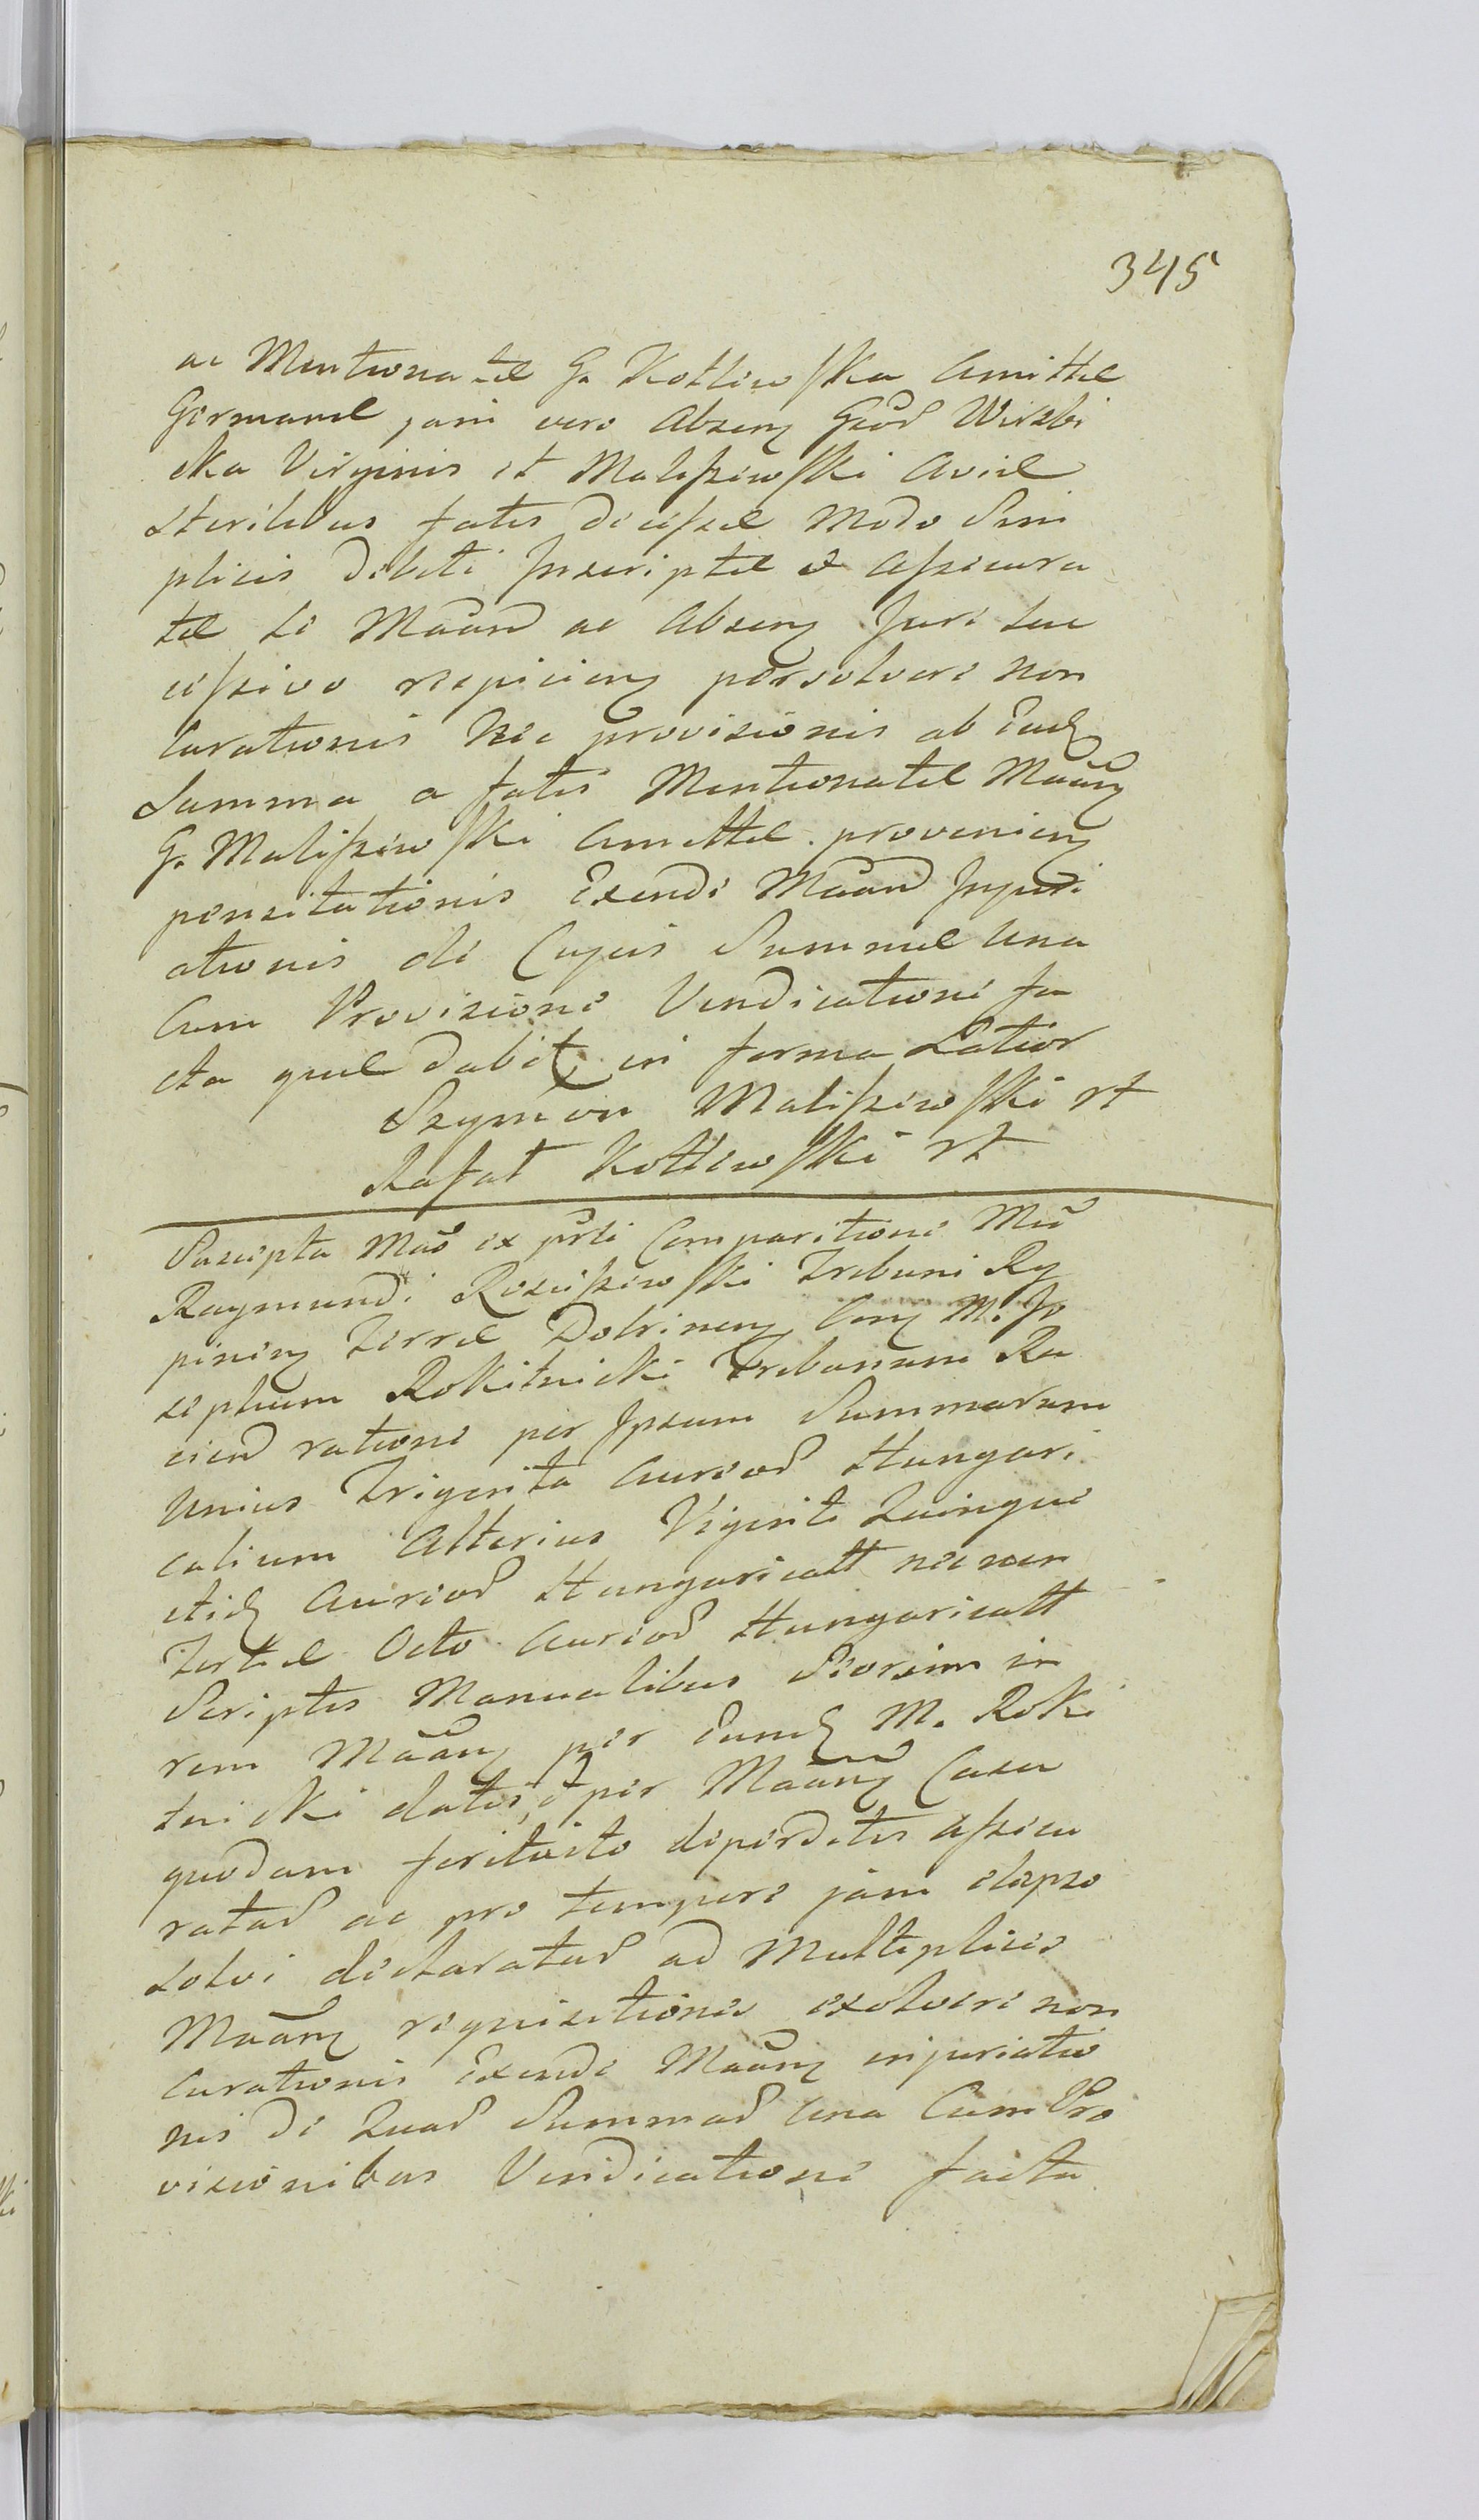 345
ac Mentionatæ G. Kotlewska Amittæ
Germanæ jam vero Absen Gsor Wirzbi
cka Virginis et Maliszewski Aviæ
Sterilibus fatis decessæ Modo Sim
plicis debiti Inscriptæ et Assecura
tæ se Maand ac Absen Jure suc
cessivo respicien persolvere non
Curationis nec provisionis ab Ead
Summa a fatis Mentionatæ Maan
G. Maliszewski Amittæ provenien
pensitationis Exende Maand Injuri
ationis de Cujus Summæ una
Cum Provisione Vendicatione fa
cta quæ dabit in forma Latior
Szymon Maliszewski rt
Rafał Kotlewski rt
Suscepta Mao ex prti Comparitione Mci
Raymundi Rosciszewski Tribuni Ry
pinen Terræ Dobrinen Con M. Jo
sephum Rokitnicki Tribunum Ra
cien ratione per Ipsum Summarum
unius Triginta Aureor Hungari
calium Alterius Viginti Quinque
itid Aureor Hungaricall nec non
Tertiæ Octo Aureor Hungaricall
Scriptis Manualibus Seorsim in
rem Maan per Eund M. Roki
tnicki datis, et per Maan Casu
quodam fortuito deperditis assecu
ratar ac pro tempore jam elapso
solvi declaratar ad Multiplices
Maan requisitiones exolvere non
Curationis Exende Maan injuriatio
nis de Quar Summar una Cum Pro
visionibus Vendicatione facta